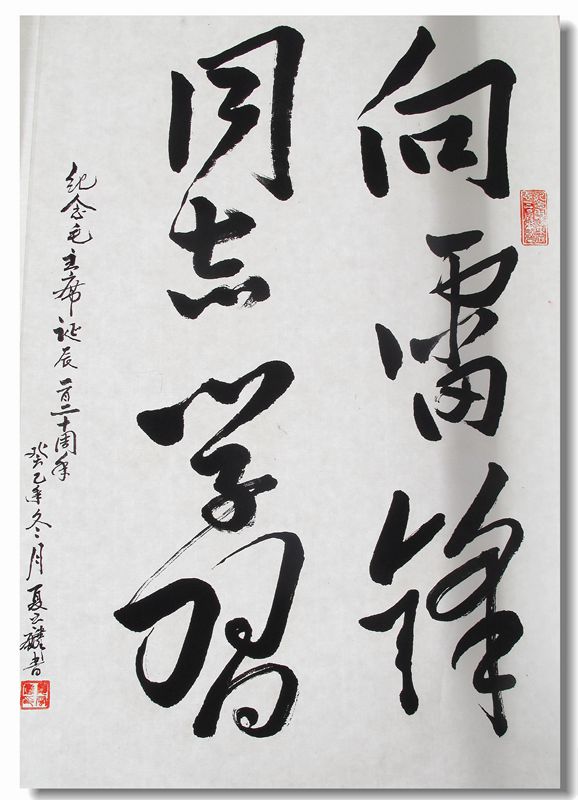 向雷锋
同志学习
纪念毛主席诞辰一百二十周年
癸巳年冬月夏
书